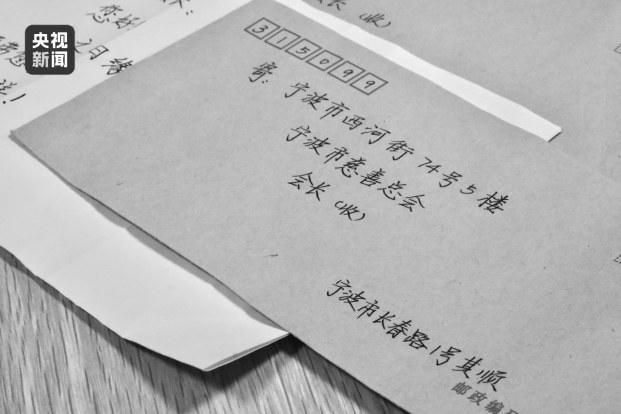 央视
新闻
您好
会长(收)
315099
寄:宁波市西河街74号5楼
宁波市慈善总会
会长(收)
宁波市长春路1号某顺
邮政编